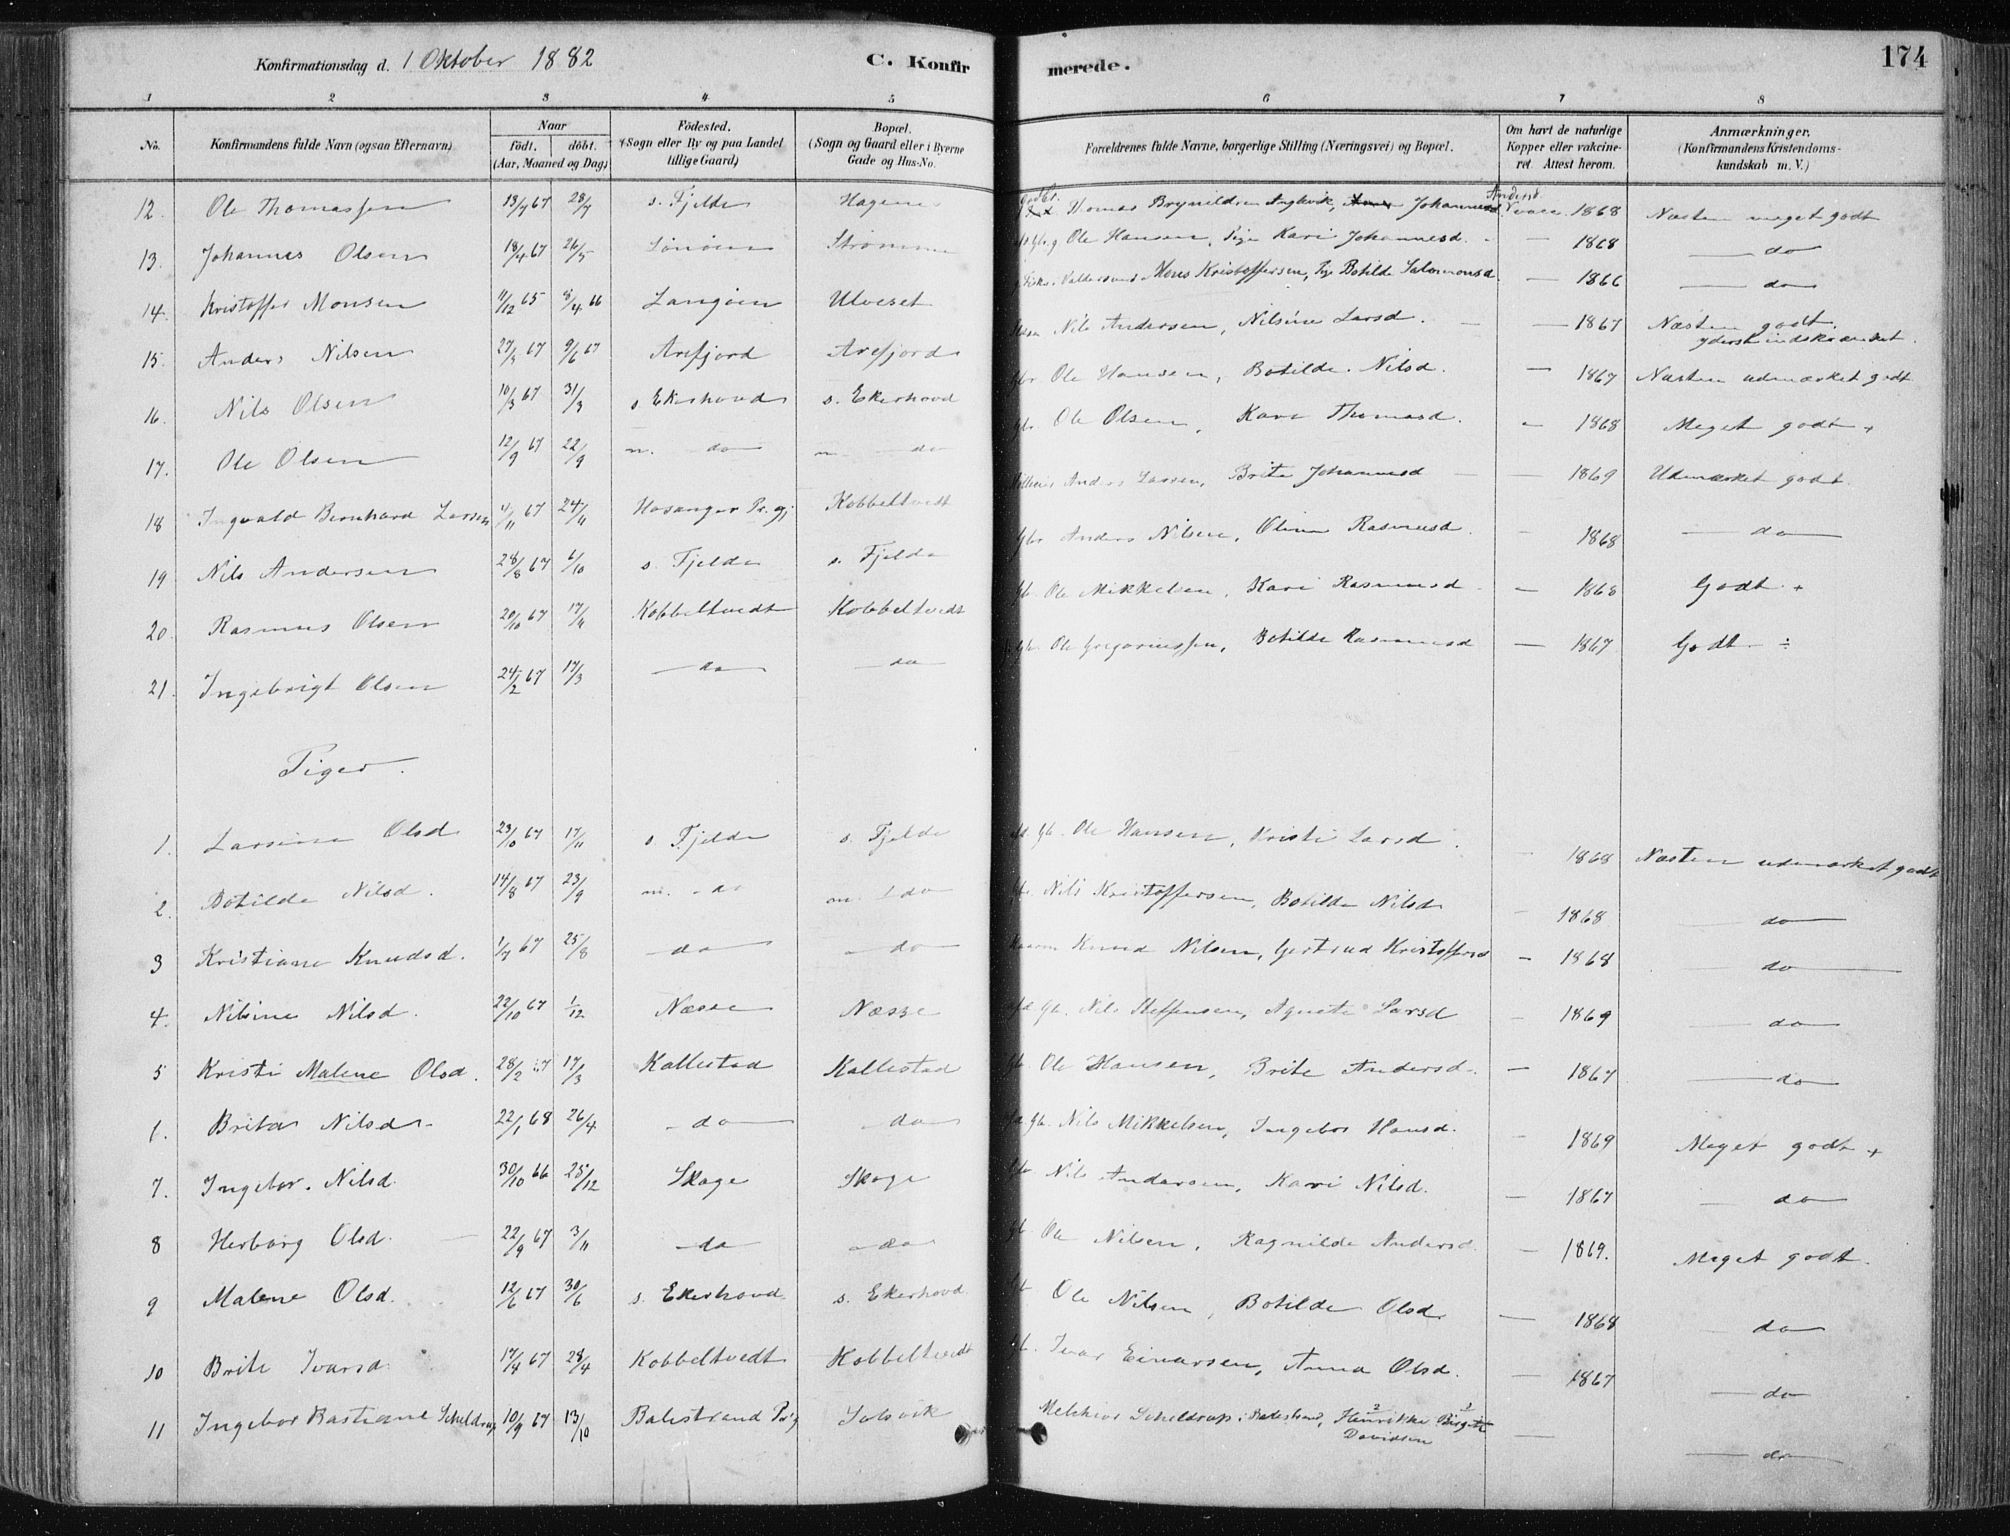 Konfirmationsdag d. 1 Oktober 1882 C. Konfirmerede. 174
1 2 3 4 5 6 7 8
No. Konfirmandens fulde Navn (ogsaa Efternavn) Naar født. døbt. (Aar, Maaned og Dag) Fødested. (Sogn eller By og paa Landet tillige Gaard) Bopæl. (Sogn og Gaard eller i Byerne Gade og Hus-No. Forældrenes fulde Navne, borgerlige Stilling (Næringsvei) og Bopæl. Om havt de naturlige Kopper eller vakcineret. Attest herom. Anmærkninger. (Konfirmandens Kristendomskundskab m. V.)
12. Ole Thomassen 13/7 67 28/7 s. Fjelde Hagene Thomas Brynildsen Johannesd. Andersd. Vacc. 1868 Næsten meget godt
13. Johannes Olsen 18/4 67 26/5 Strømme Ole Hansen, Pige Kari Johannesd. — 1868 do
14. Kristoffer Monsen 11/12 65 8/4 66 Langøen Ulveset Mons Kristoffersen, Pige Botilde Salomonsd. — 1866 do
15. Anders Nilsen 27/3 67 9/6 67 Arefjord Arefjord Nils Andersen, Nilsine Larsd. — 1867 Næsten godt. yderst indskrænket.
16. Nils Olsen 10/3 67 31/3 s Ekerhovd s. Ekerhovd Gbr Ole Hansen, Botilde Nilsd. — 1867 Næsten udmærket godt
17. Ole Olsen 12/9 67 22/9 n. do n. do Gbr Ole Olsen, Kari Thomasd. - 1868 Meget godt +
18 Ingvald Bernhard Larsen 4/11 67 24/11 Hosanger Pr.gj. Kobbeltvedt Anders Larsen, Brite Johannesd — 1869 Udmærket godt.
19 Nils Andersen 28/8 67 6/10 s. Fjelde s. Fjelde Gbr Anders Nilsen, Oline Rasmusd. - 1868 do
20. Rasmus Olsen 20/10 67 17/11 Kobbeltvedt Kobbeltvedt Gb. Ole Mikkelsen, Kari Rasmusd. — 1868 Godt +
21. Ingebrigt Olsen 24/2 67 17/3 do do Gb. Ole Gregoriussen, Botilde Rasmusd — 1867 Godt ÷
Piger.
1. Larsine Olsd 23/10 67 17/11 s Fjelde s. Fjelde Gb. Ole Hansen, Kristi Larsd. 1868 Næsten udmærket godt
2. Botilde Nilsd. 14/8 67 23/9 m. do m. do Gb. Nils Kristoffersen, Botilde Nilsd 1868 do
3 Kristiane Knudsd. 1/7 67 25/8 do do Knud Nilsen, Gertrud Kristoffersd — 1868 do
4. Nilsine Nilsd. 22/10 67 1/12 Næsse Næsse Gb. Nils Steffensen, Agnete Larsd 1869 do
5 Kristi Malene Olsd. 28/2 67 17/3 Kallestad Kallestad Gb Ole Hansen, Brite Andersd. — 1867 do
6. Brita Nilsd 22/1 68 26/4 do do Gb. Nils Mikkelsen, Ingebor Hansd. 1869 Meget godt +
7. Ingebor. Nilsd. 30/10 66 25/12 Skoge Skoge Gb Nils Andersen, Kari Nilsd. — 1867 do
8 Herborg Olsd. 22/9 67 3/11 do do Gb Ole Nilsen, Ragnilde Andersd. — 1869. Meget godt.
9 Malene Olsd. 12/6 67 30/6 s. Ekerhovd s. Ekerhovd Ole Nilsen, Botilde Olsd. — 1868 do
10 Brite Ivarsd. 17/4 67 28/4 Kobbeltvedt Kobbeltvedt Gb. Ivar Einarsen, Anna Olsd. — 1867 do
11 Ingebor Bastiane Scheldrup 10/9 67 13/10 Balestrand Pr.g Solsvik Melchior Scheldrup i Balestrand, Henrikke Birgitte Davidsen — do